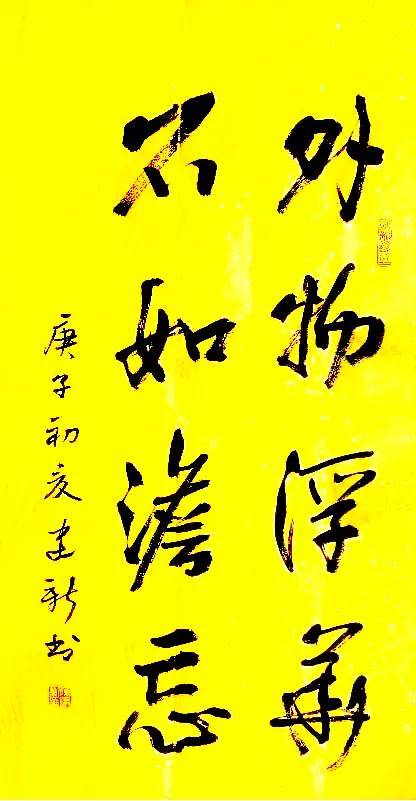 外物浮華
不如澹忘
庚子初夏建新书